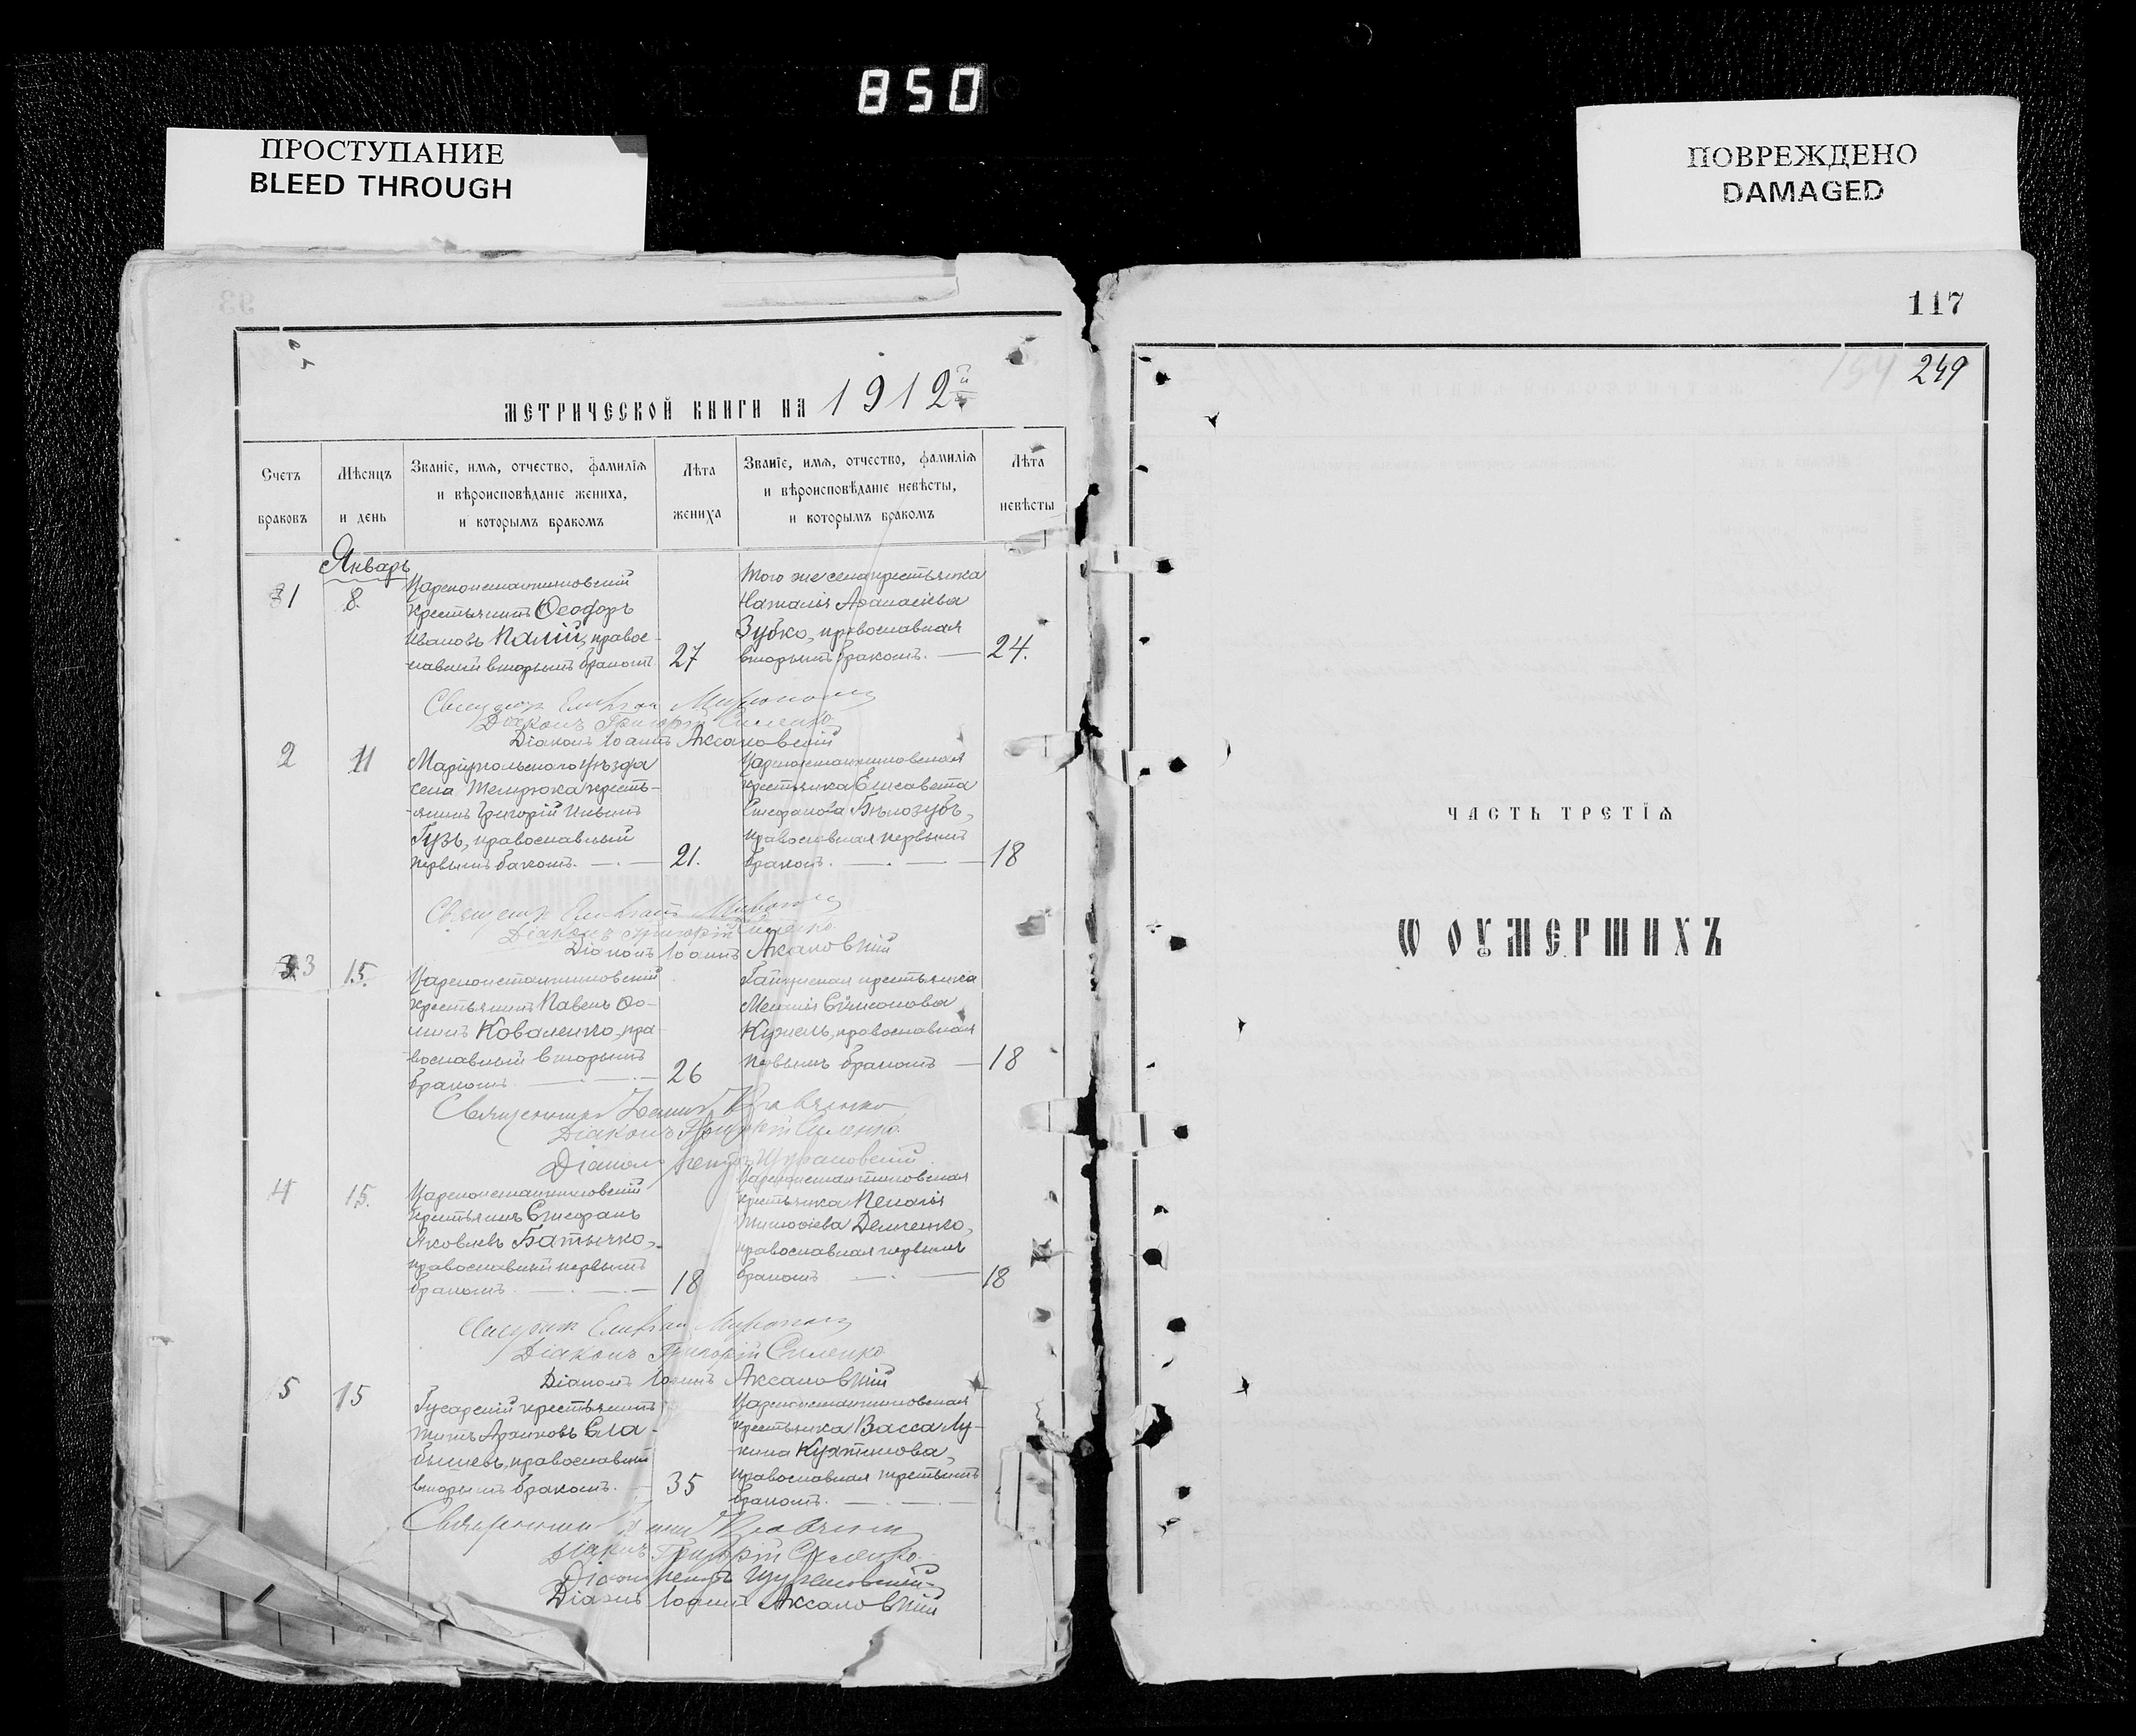 850
ПРОСТУПАНИЕ
BLEED THROUGH
ПОВРЕЖДЕНО
DAMAGED
МЕТРИЧЕСКОЙ КНИГИ НА 1912й
Счетъ
браковъ
Мѣсяцъ
и день
Званіе, имя, отчество, фамилія
и вѣроисповѣданіе жениха,
и которымъ бракомъ
Лѣта
жениха
Званіе, имя, отчество, фамилія
и вѣроисповѣданіе невѣсты,
и которымъ бракомъ
Лѣта
невѣсты
Январь
1
8.
Цареконстантиновскій
крестьянинъ Ѳеодоръ
Ивановъ Палій, правос-
лавный вторымъ бракомъ
27
Того же села крестьянка
Наталія Аѳанасіева
Зубко, православная
вторымъ бракомъ.
24.
Діаконъ Григорій Силенко
Діаконъ Іоаннъ Аксаковскій
2
11
Маріупольскаго уѣзда
села Темрюка кресть-
янинъ Григорій
Гузь, православный
первымъ бакомъ.
21.
Цареконстантиновская
крестьянка Елисавета
Стефанова Бѣлозубъ,
православная первымъ
бракомъ.
18
Діаконъ Григорій Силенко
Діаконъ Іоаннъ Аксаковскій
3
15.
Цареконстантиновскій
крестьянинъ Павелъ Ѳо-
минъ Коваленко, пра-
вославный вторымъ
бракомъ
26
крестьянка
Меланія Сѵмеонова
Кужель, православная
первымъ бракомъ
18
Священникъ Іоаннъ
Діаконъ Григорій Силенко
Діаконъ
4
15.
Цареконстантиновскій
крестьянинъ Стефанъ
Яковлевъ Батычко,
православный первымъ
бракомъ
18
Цареконстантиновская
крестьянка Пелагія
Тимоѳіева Демченко,
православная первымъ
бракомъ
18
Діаконъ Григорій Силенко
Діаконъ Іоаннъ Аксаковскій
5
15
Гусарскій крестьянинъ
Титъ Архиповъ Ела-
православный
вторымъ бракомъ.
35
Цареконстантиновская
крестьянка Васса Лу-
кина
православная третьимъ
бракомъ.
Священникъ
Діаконъ Григорій Силенко
Діаконъ
Діаконъ Іоаннъ Аксаковскій
117
249
ЧАСТЬ ТРЕТІЯ
Ѡ ОУМЕРШИХЪ